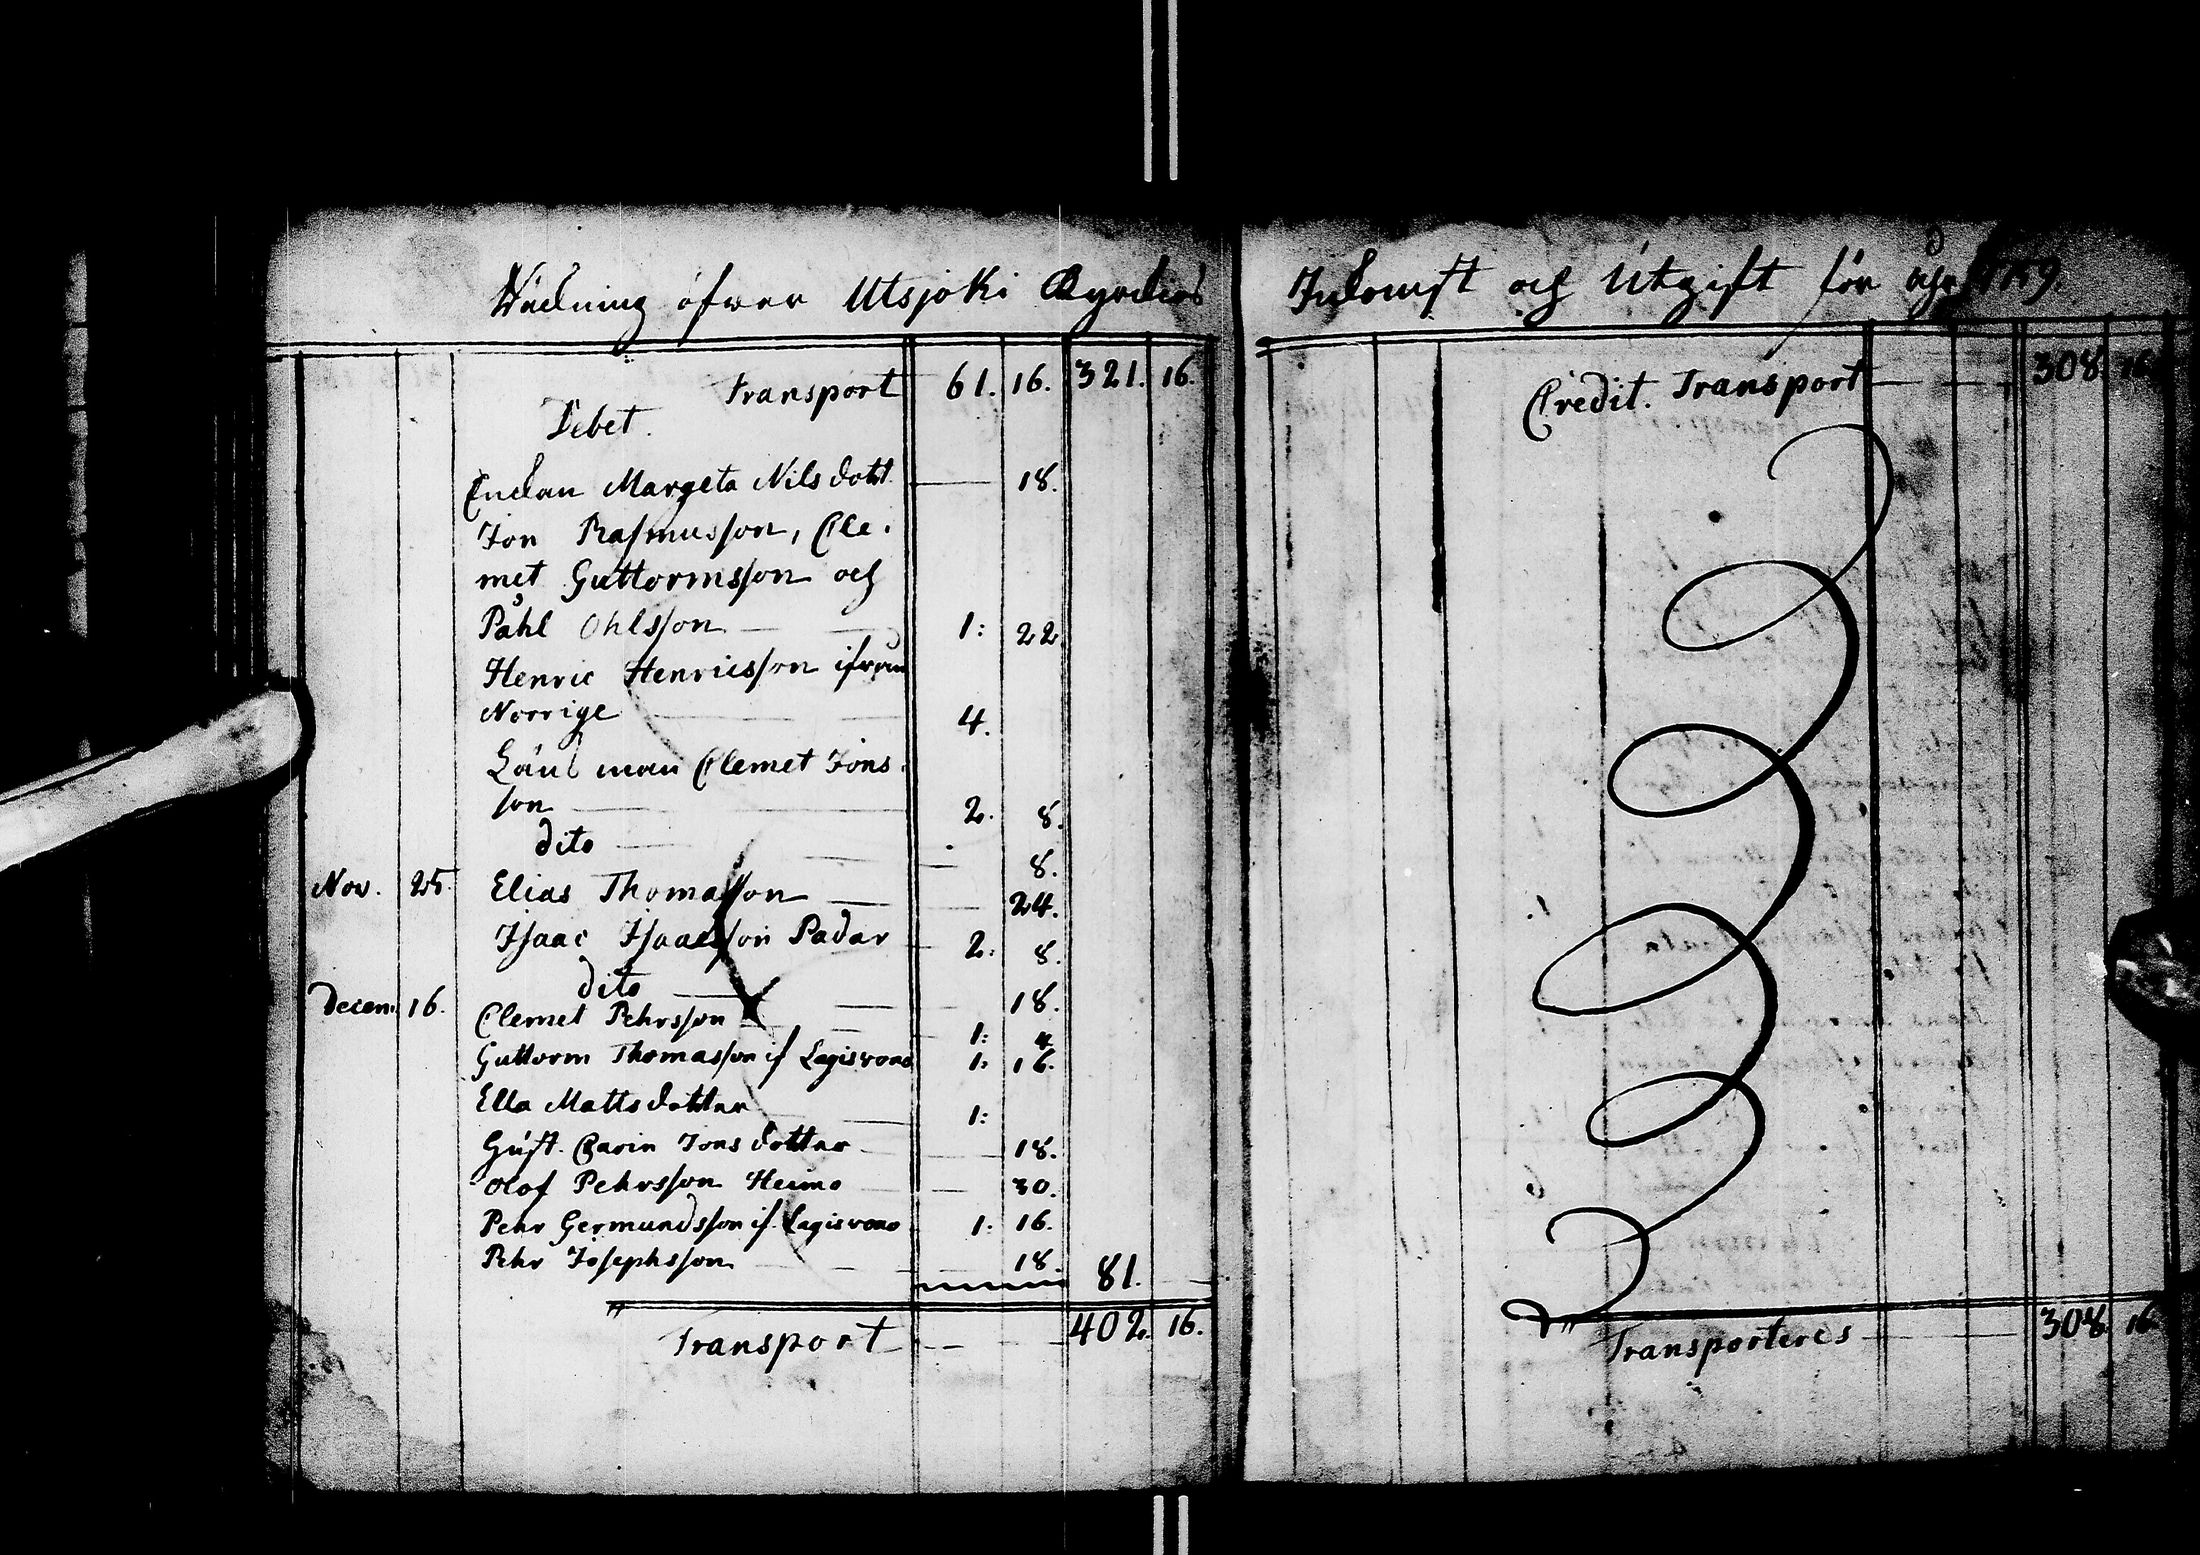 Räckning öfwer Utsjoki Kyrckos
Transport 61. 16. 321. 16.
Debet.
Enckan Margeta Nils dott. — 18.
Jon Rasmusson, Cle-
met Guttormsson och
Påhl Ohlsson — 1: 22.
Henric Henricsson ifrån
Norrige — 4.
Länsman Clemet Jons-
son — 2. 8.
dito — 8.
Nov. 25. Elias Thomasson — 24.
Isaac Isaacsson Padar 2: 8.
dito — 18.
Decem. 16. Clemet Pehrsson — 1: 4
Guttorm Thomasson if Lagisvono 1: 16.
Ella Matts dotter — 1:
Hust. Carin Jons dotter — 18.
Olof Pehrsson Heimo — 30.
Pehr Germundsson if. Lagisvono 1: 16.
Pehr Josephsson — 18. 81. —
Transport — 402. 16.
Inkomst och Utgift för åhr
Credit. Transport — 308. 16.
Transporteres — 308. 16.